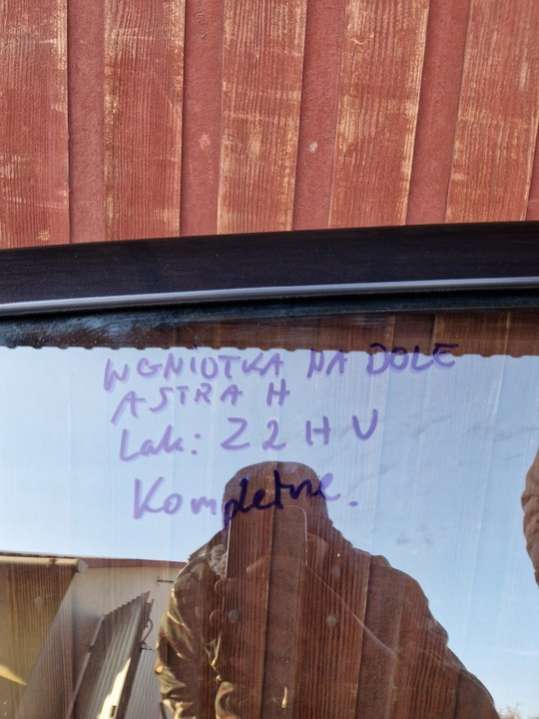 WGNIOTKA NA DOLE
ASTRA H
Lak: Z2HU
Kompletne.